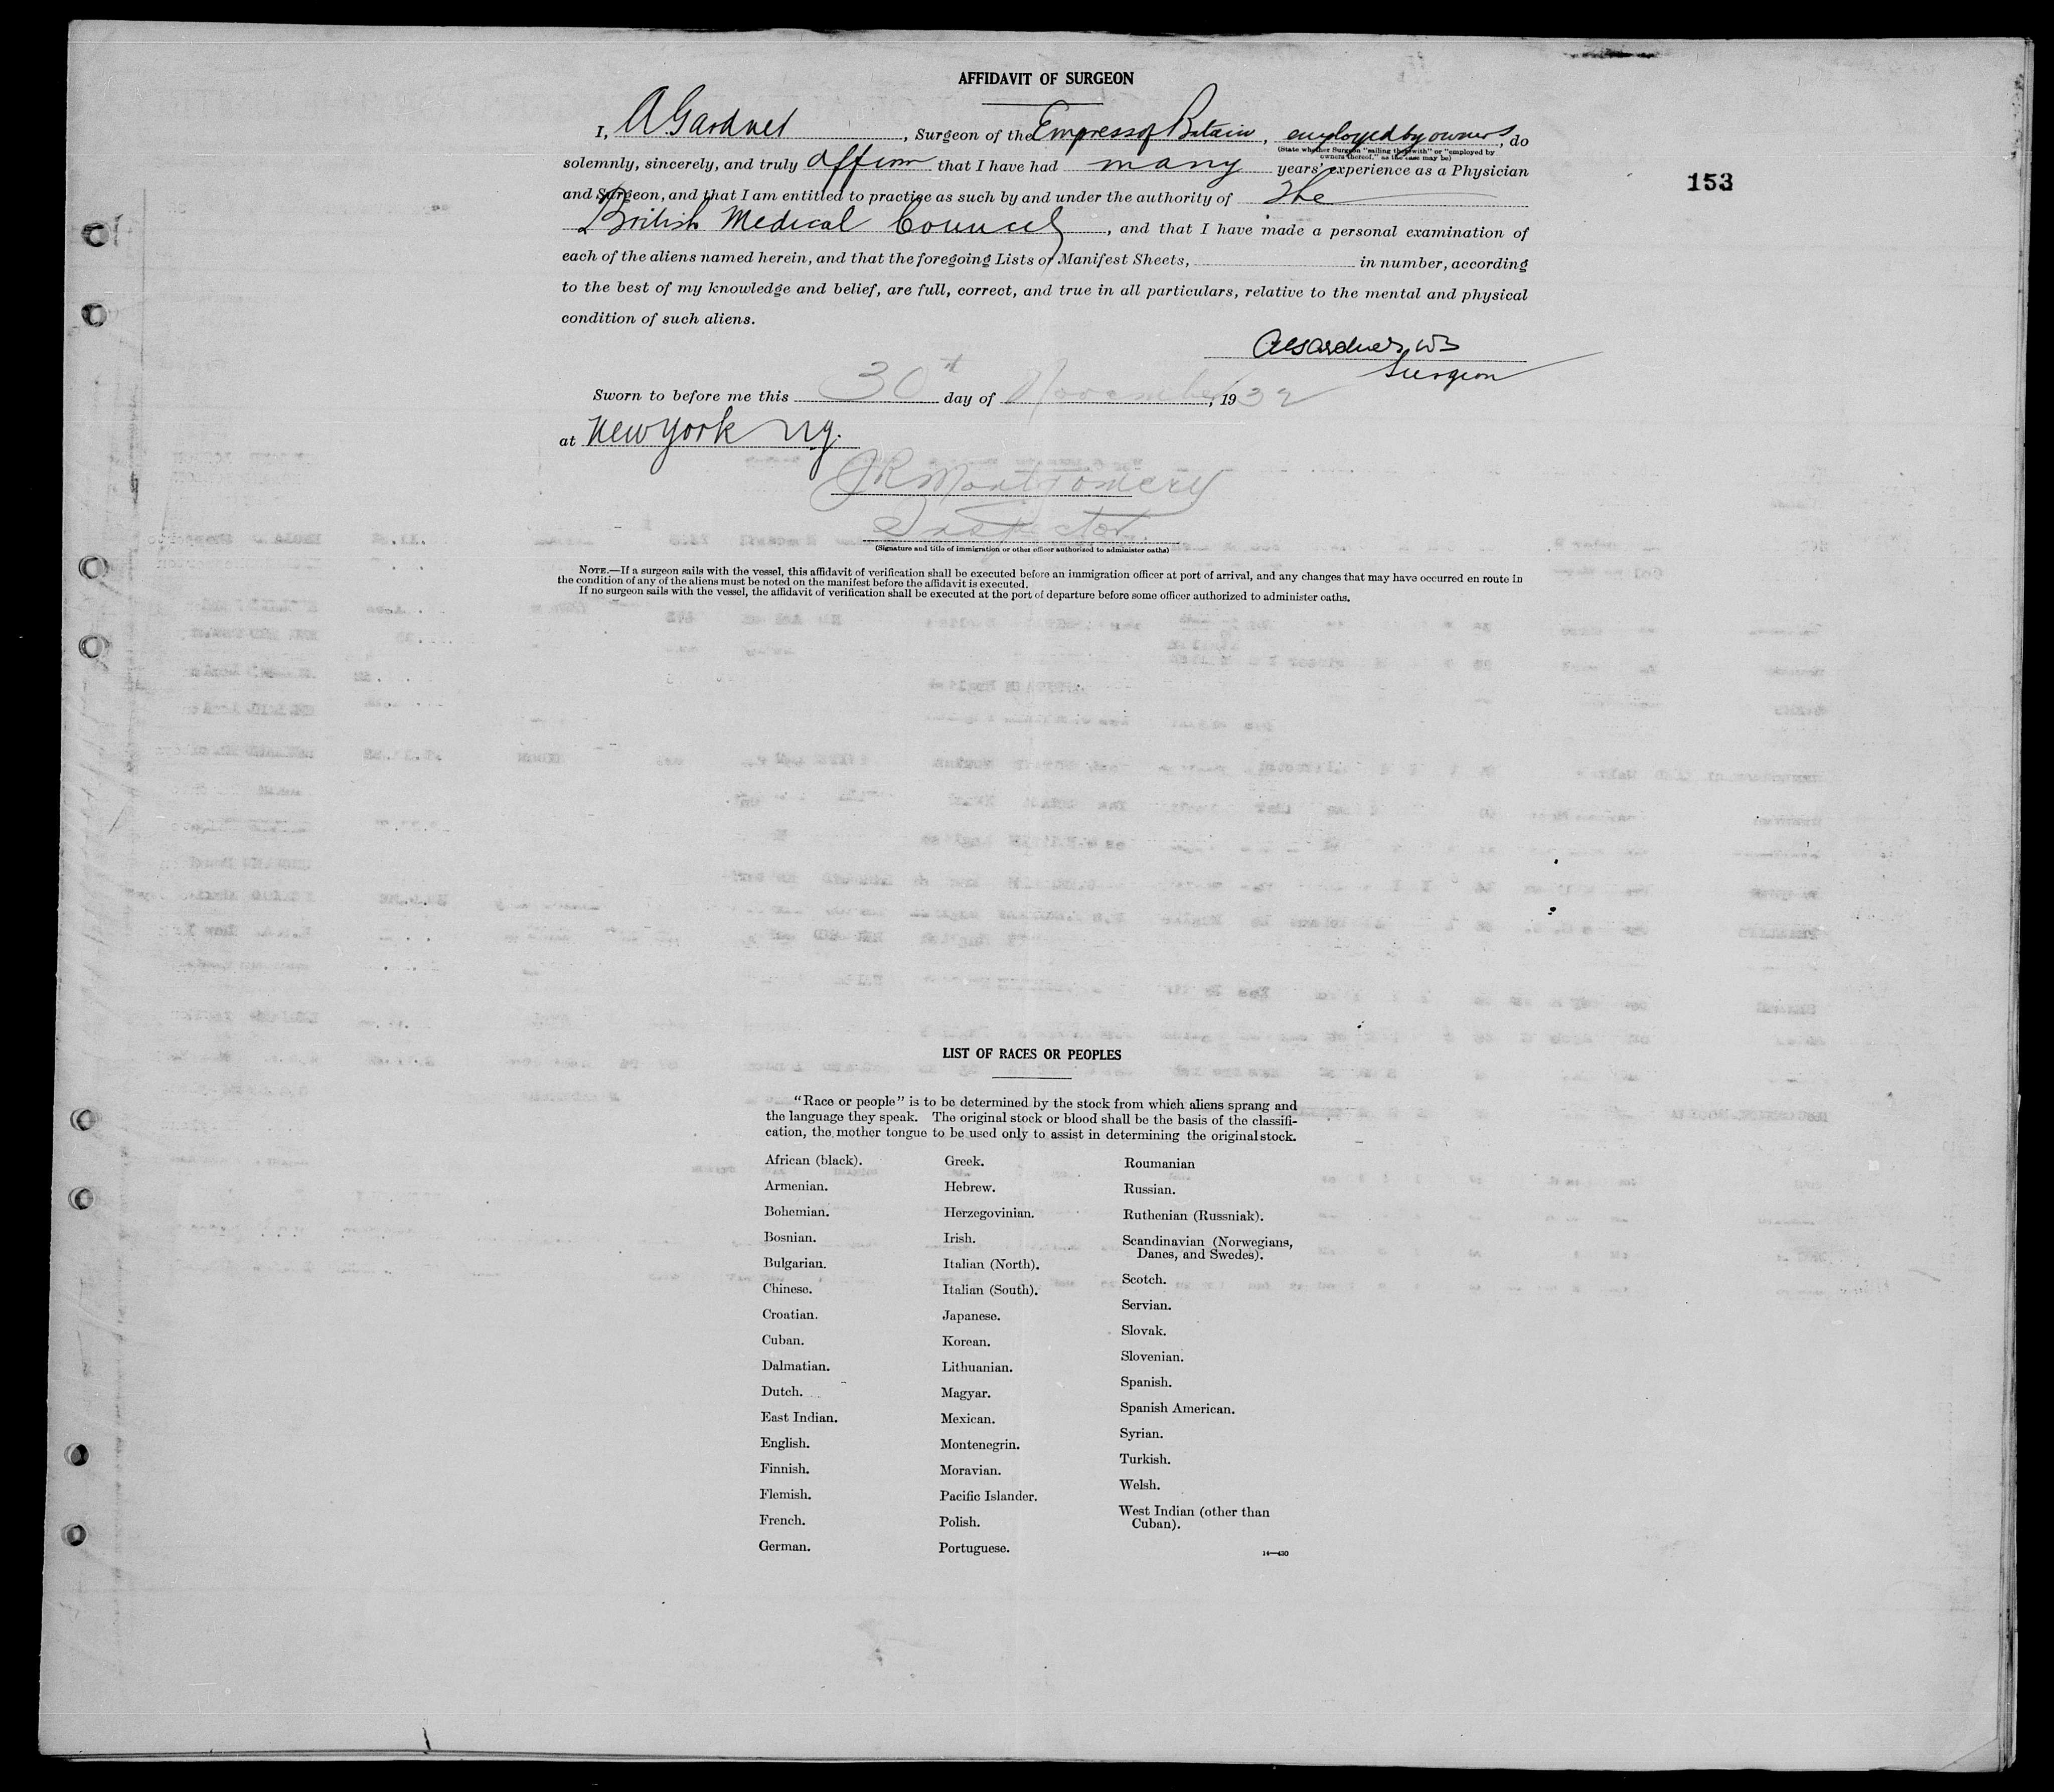 AFFIDAVIT OF SURGEON
I, A Gardner, Surgeon of the Empress of Britain, employed by owners, do
(State whether Surgeon "sailing therewith" or "employed by
owners thereof," as the case may be)
solemnly, sincerely, and truly affirm that I have had many years' experience as a Physician
153
and Surgeon, and that I am entitled to practise as such by and under the authority of The
British Medical Council, and that I have made a personal examination of
each of the aliens named herein, and that the foregoing Lists or Manifest Sheets, in number, according
to the best of my knowledge and belief, are full, correct, and true in all particulars, relative to the mental and physical
condition of such aliens.
Surgeon
Sworn to before me this 30th day of November, 1932
at New York N.Y.
JR Montgomery
Inspector.
(Signature and title of immigration or other officer authorized to administer oaths)
NOTE.—If a surgeon sails with the vessel, this affidavit of verification shall be executed before an immigration officer at port of arrival, and any changes that may have occurred en route in
the condition of any of the aliens must be noted on the manifest before the affidavit is executed.
If no surgeon sails with the vessel, the affidavit of verification shall be executed at the port of departure before some officer authorized to administer oaths.
LIST OF RACES OR PEOPLES
"Race or people" is to be determined by the stock from which aliens sprang and
the language they speak. The original stock or blood shall be the basis of the classifi-
cation, the mother tongue to be used only to assist in determining the original stock.
African (black).
Armenian.
Bohemian.
Bosnian.
Bulgarian.
Chinese.
Croatian.
Cuban.
Dalmatian.
Dutch.
East Indian.
English.
Finnish.
Flemish.
French.
German.
Greek.
Hebrew.
Herzegovinian.
Irish.
Italian (North).
Italian (South).
Japanese.
Korean.
Lithuanian.
Magyar.
Mexican.
Montenegrin.
Moravian.
Pacific Islander.
Polish.
Portuguese.
Roumanian
Russian.
Ruthenian (Russniak).
Scandinavian (Norwegians,
Danes, and Swedes).
Scotch.
Servian.
Slovak.
Slovenian.
Spanish.
Spanish American.
Syrian.
Turkish.
Welsh.
West Indian (other than
Cuban).
14—430